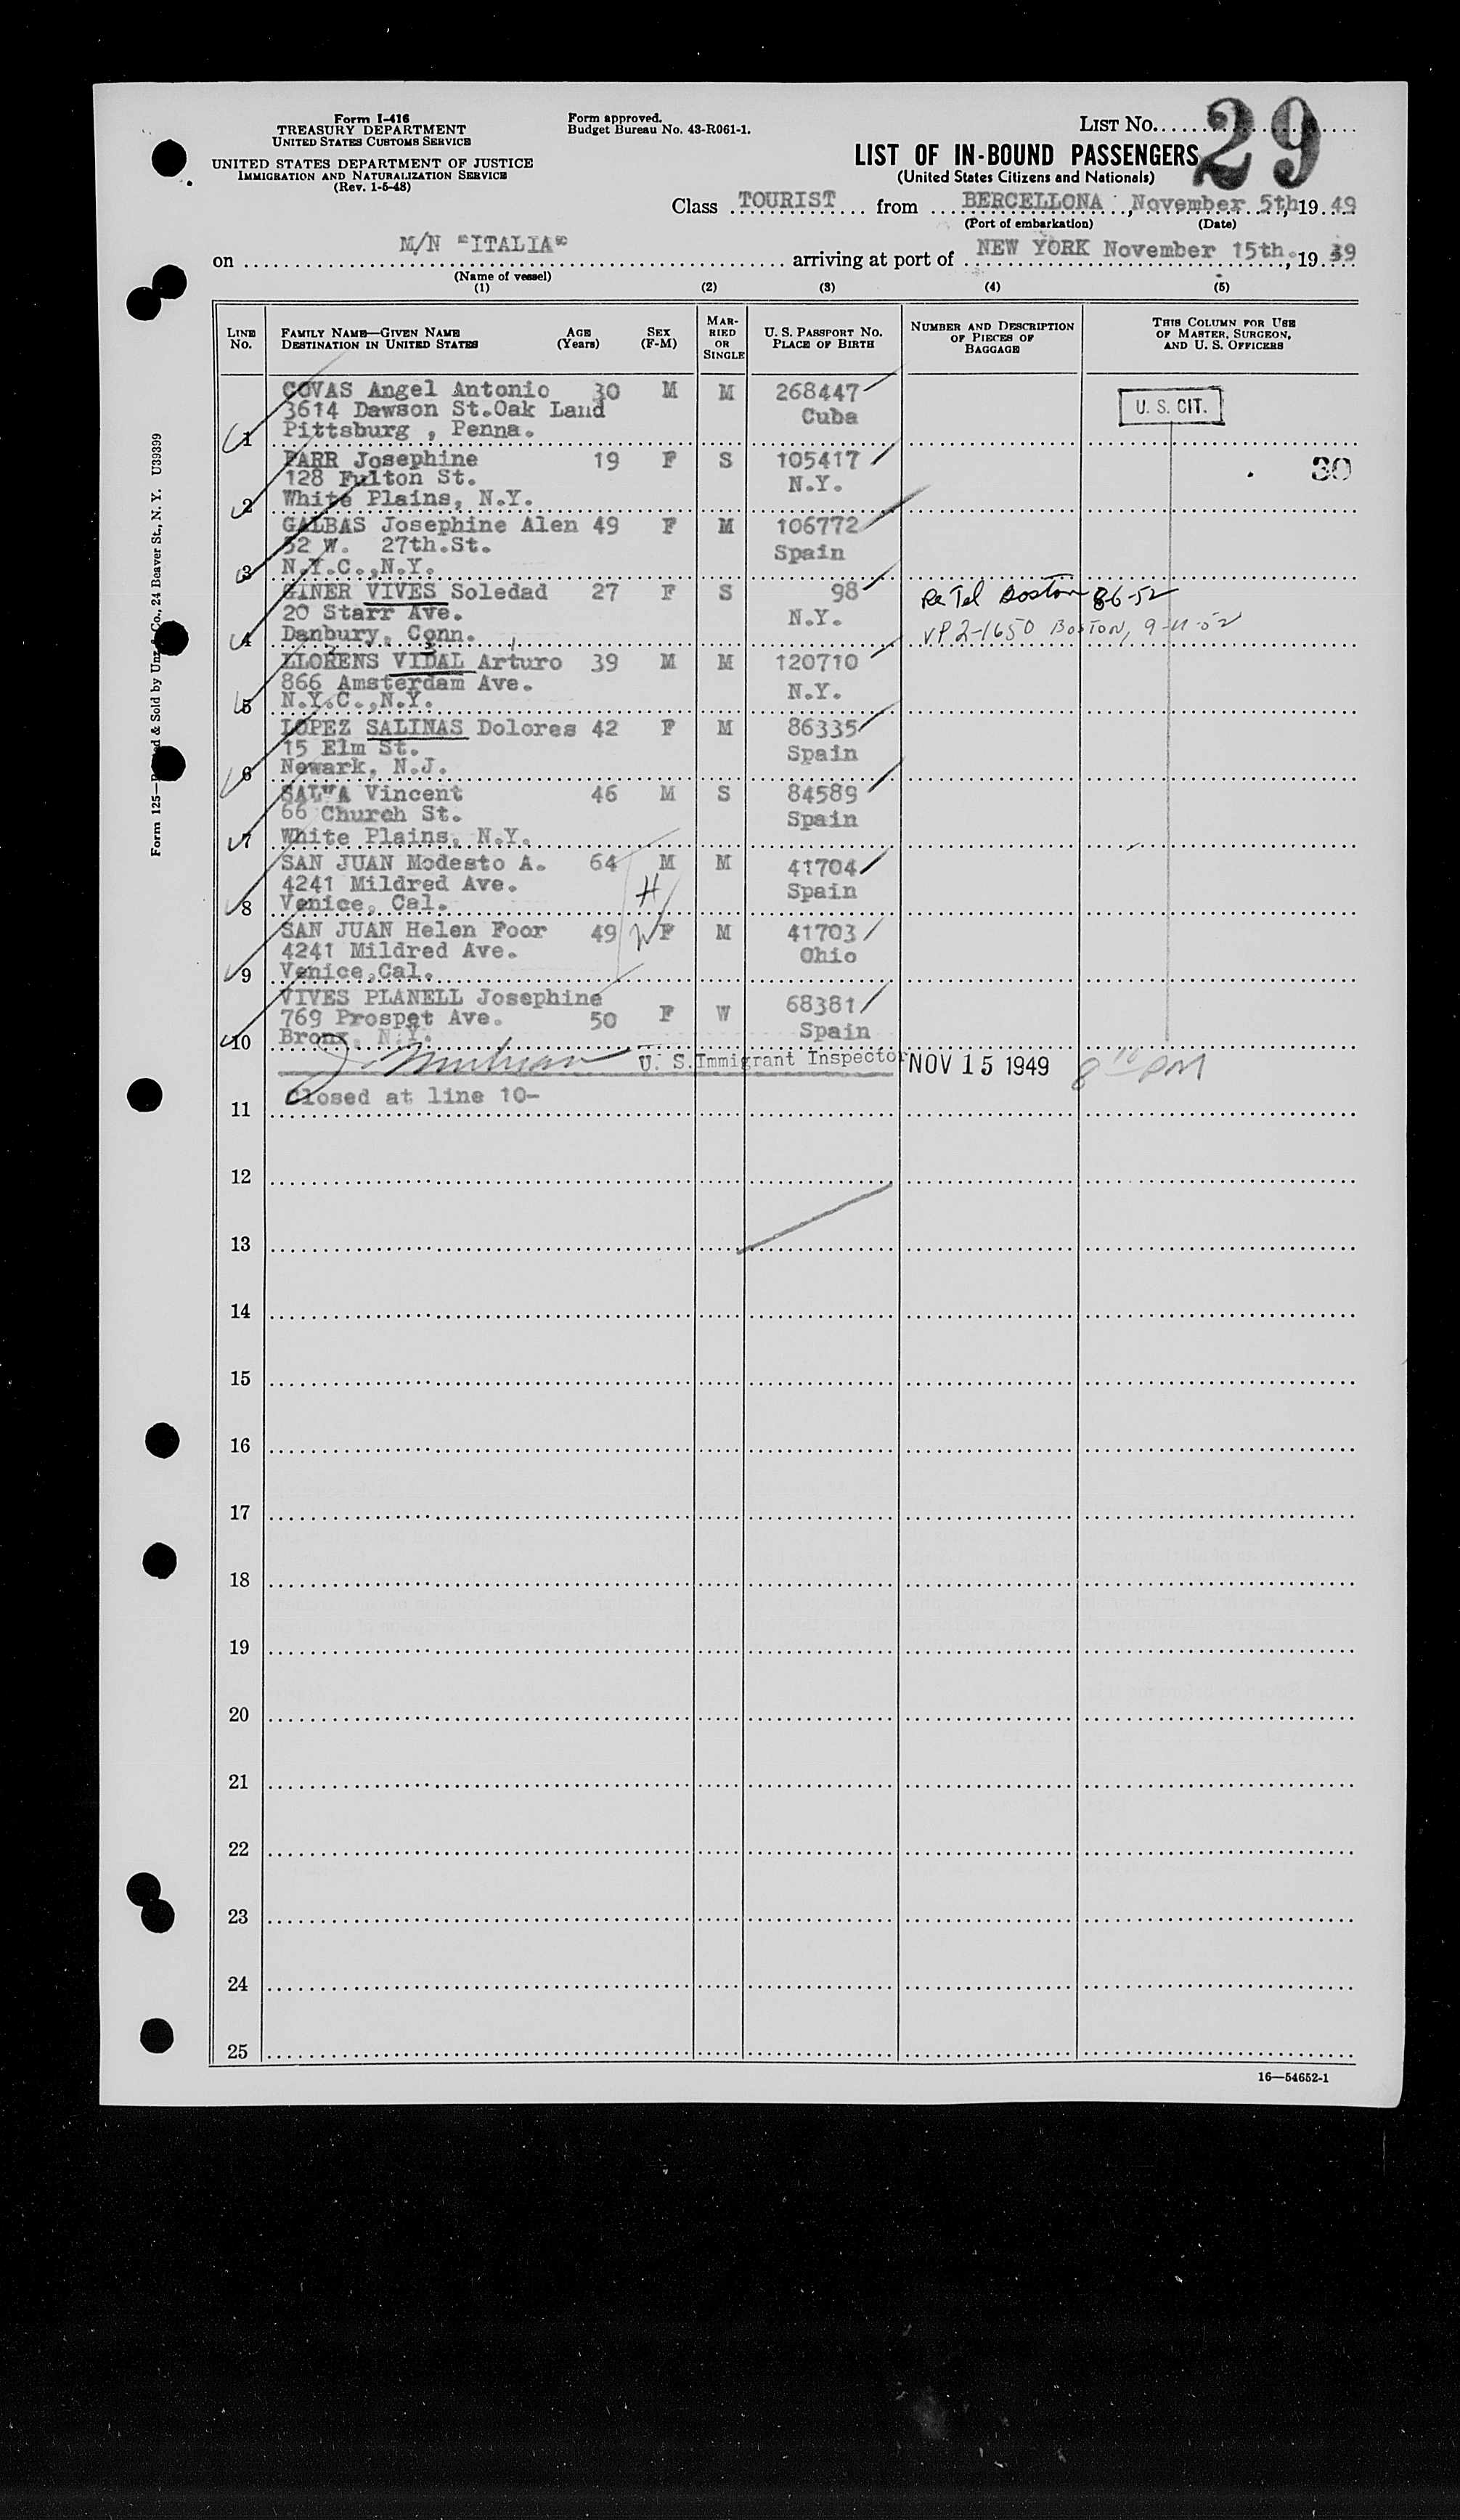 Form I-416
TREASURY DEPARTMENT
UNITED STATES CUSTOMS SERVICE
UNITED STATES DEPARTMENT OF JUSTICE
IMMIGRATION AND NATURALIZATION SERVICE
(Rev. 1-5-48)
Form approved.
Budget Bureau No. 43-R061-1.
LIST NO. 29
LIST OF IN-BOUND PASSENGERS
(United States Citizens and Nationals)
Class TOURIST from BERCELLONA, November 5th, 19 49
(Port of embarkation) (Date)
on M/N "ITALIA" arriving at port of NEW YORK November 15th., 19 39
(Name of vessel)
(1) (2) (3) (4) (5)
LINE NO.
FAMILY NAME—GIVEN NAME
DESTINATION IN UNITED STATES
AGE (Years)
SEX (F-M)
MARRIED OR SINGLE
U. S. PASSPORT NO.
PLACE OF BIRTH
NUMBER AND DESCRIPTION OF PIECES OF BAGGAGE
THIS COLUMN FOR USE OF MASTER, SURGEON, AND U. S. OFFICERS
COVAS Angel Antonio 30 M M 268447
3614 Dawson St.Oak Land Cuba U. S. CIT.
1 Pittsburg , Penna.
PARR Josephine 19 F S 105417 30
128 Fulton St. N.Y.
2 White Plains, N.Y.
GALBAS Josephine Alen 49 F M 106772
52 W. 27th.St. Spain
3 N.Y.C.,N.Y.
GINER VIVES Soledad 27 F S 98 Re Tel Boston 86-52
20 Starr Ave. N.Y.
4 Danbury, Conn. VP 2-1650 BOSTON, 9-11-52
LLORENS VIDAL Arturo 39 M M 120710
866 Amsterdam Ave. N.Y.
5 N.Y.C.,N.Y.
LOPEZ SALINAS Dolores 42 F M 86335
15 Elm St. Spain
6 Newark, N.J.
Vincent 46 M S 84589
66 Church St. Spain
7 White Plains, N.Y.
SAN JUAN Modesto A. 64 M M 41704
4241 Mildred Ave. H Spain
8 Venice, Cal.
SAN JUAN Helen Foor 49 W F M 41703
4241 Mildred Ave. Ohio
9 Venice,Cal.
VIVES PLANELL Josephine F W 68381
769 Prospet Ave. 50 Spain
10 Bronx, N.Y.
U. S.Immigrant Inspector NOV 15 1949 8 10 PM
Closed at line 10-
11
12
13
14
15
16
17
18
19
20
21
22
23
24
25
16—54652-1